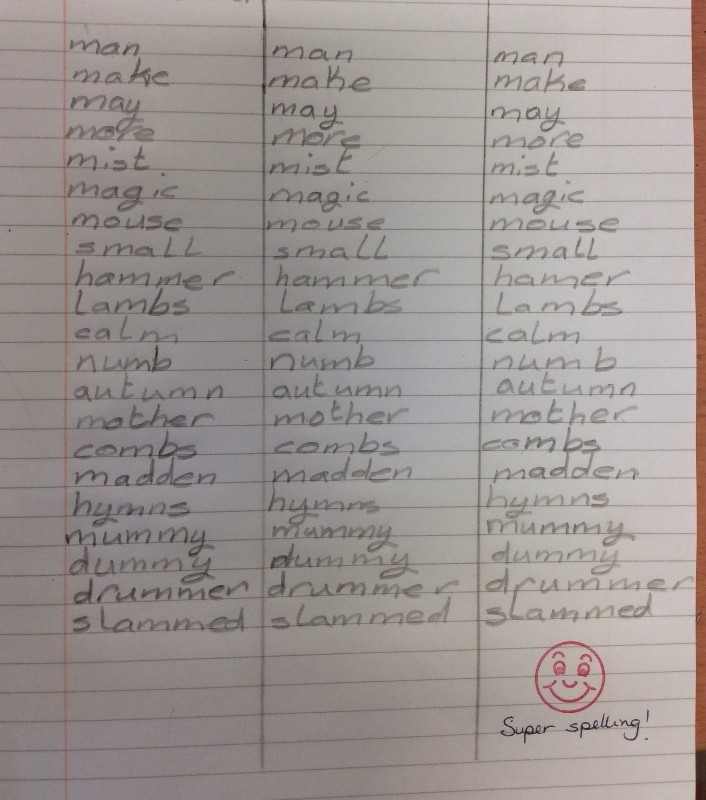 man man man
make make make
may may may
more more more
mist mist mist
magic magic magic
mouse mouse mouse
small small small
hammer hammer hamer
Lambs Lambs Lambs
calm calm calm
numb numb numb
autumn autumn autumn
mother mother mother
combs combs combs
madden madden madden
hymns hymns hymns
mummy mummy mummy
dummy dummy dummy
drummer drummer drummer
slammed slammed slammed
Super spelling!